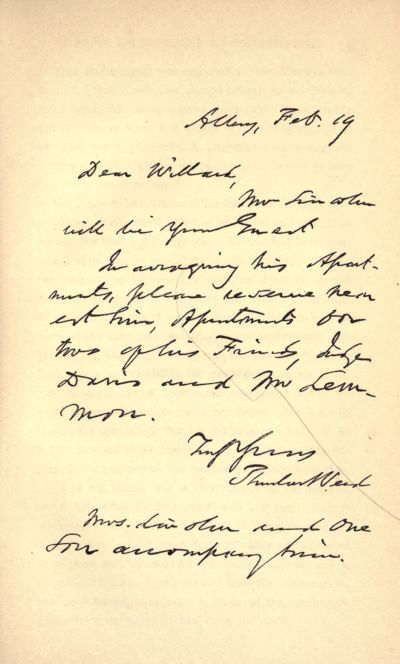 Albany, Feb. 19
Dear Willard,
Mr Lincoln
will be your Guest
In arranging his Apart-
ments, please reserve near-
est him, Apartments for
two of his Friends, Judge
Davis and Mr Lem-
mon.
Truly Yours
Thurlow Weed
Mrs. Lincoln and One
Son accompany him.